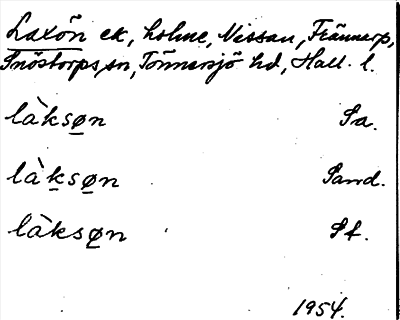 Laxön ek, holme, Nissan, Frännarp,
Snöstorps sn, Tönnersjö hd, Hall. l.
la`ksøn Sa.
la`ksøn Sand.
la`ksøn Sf.
1954.